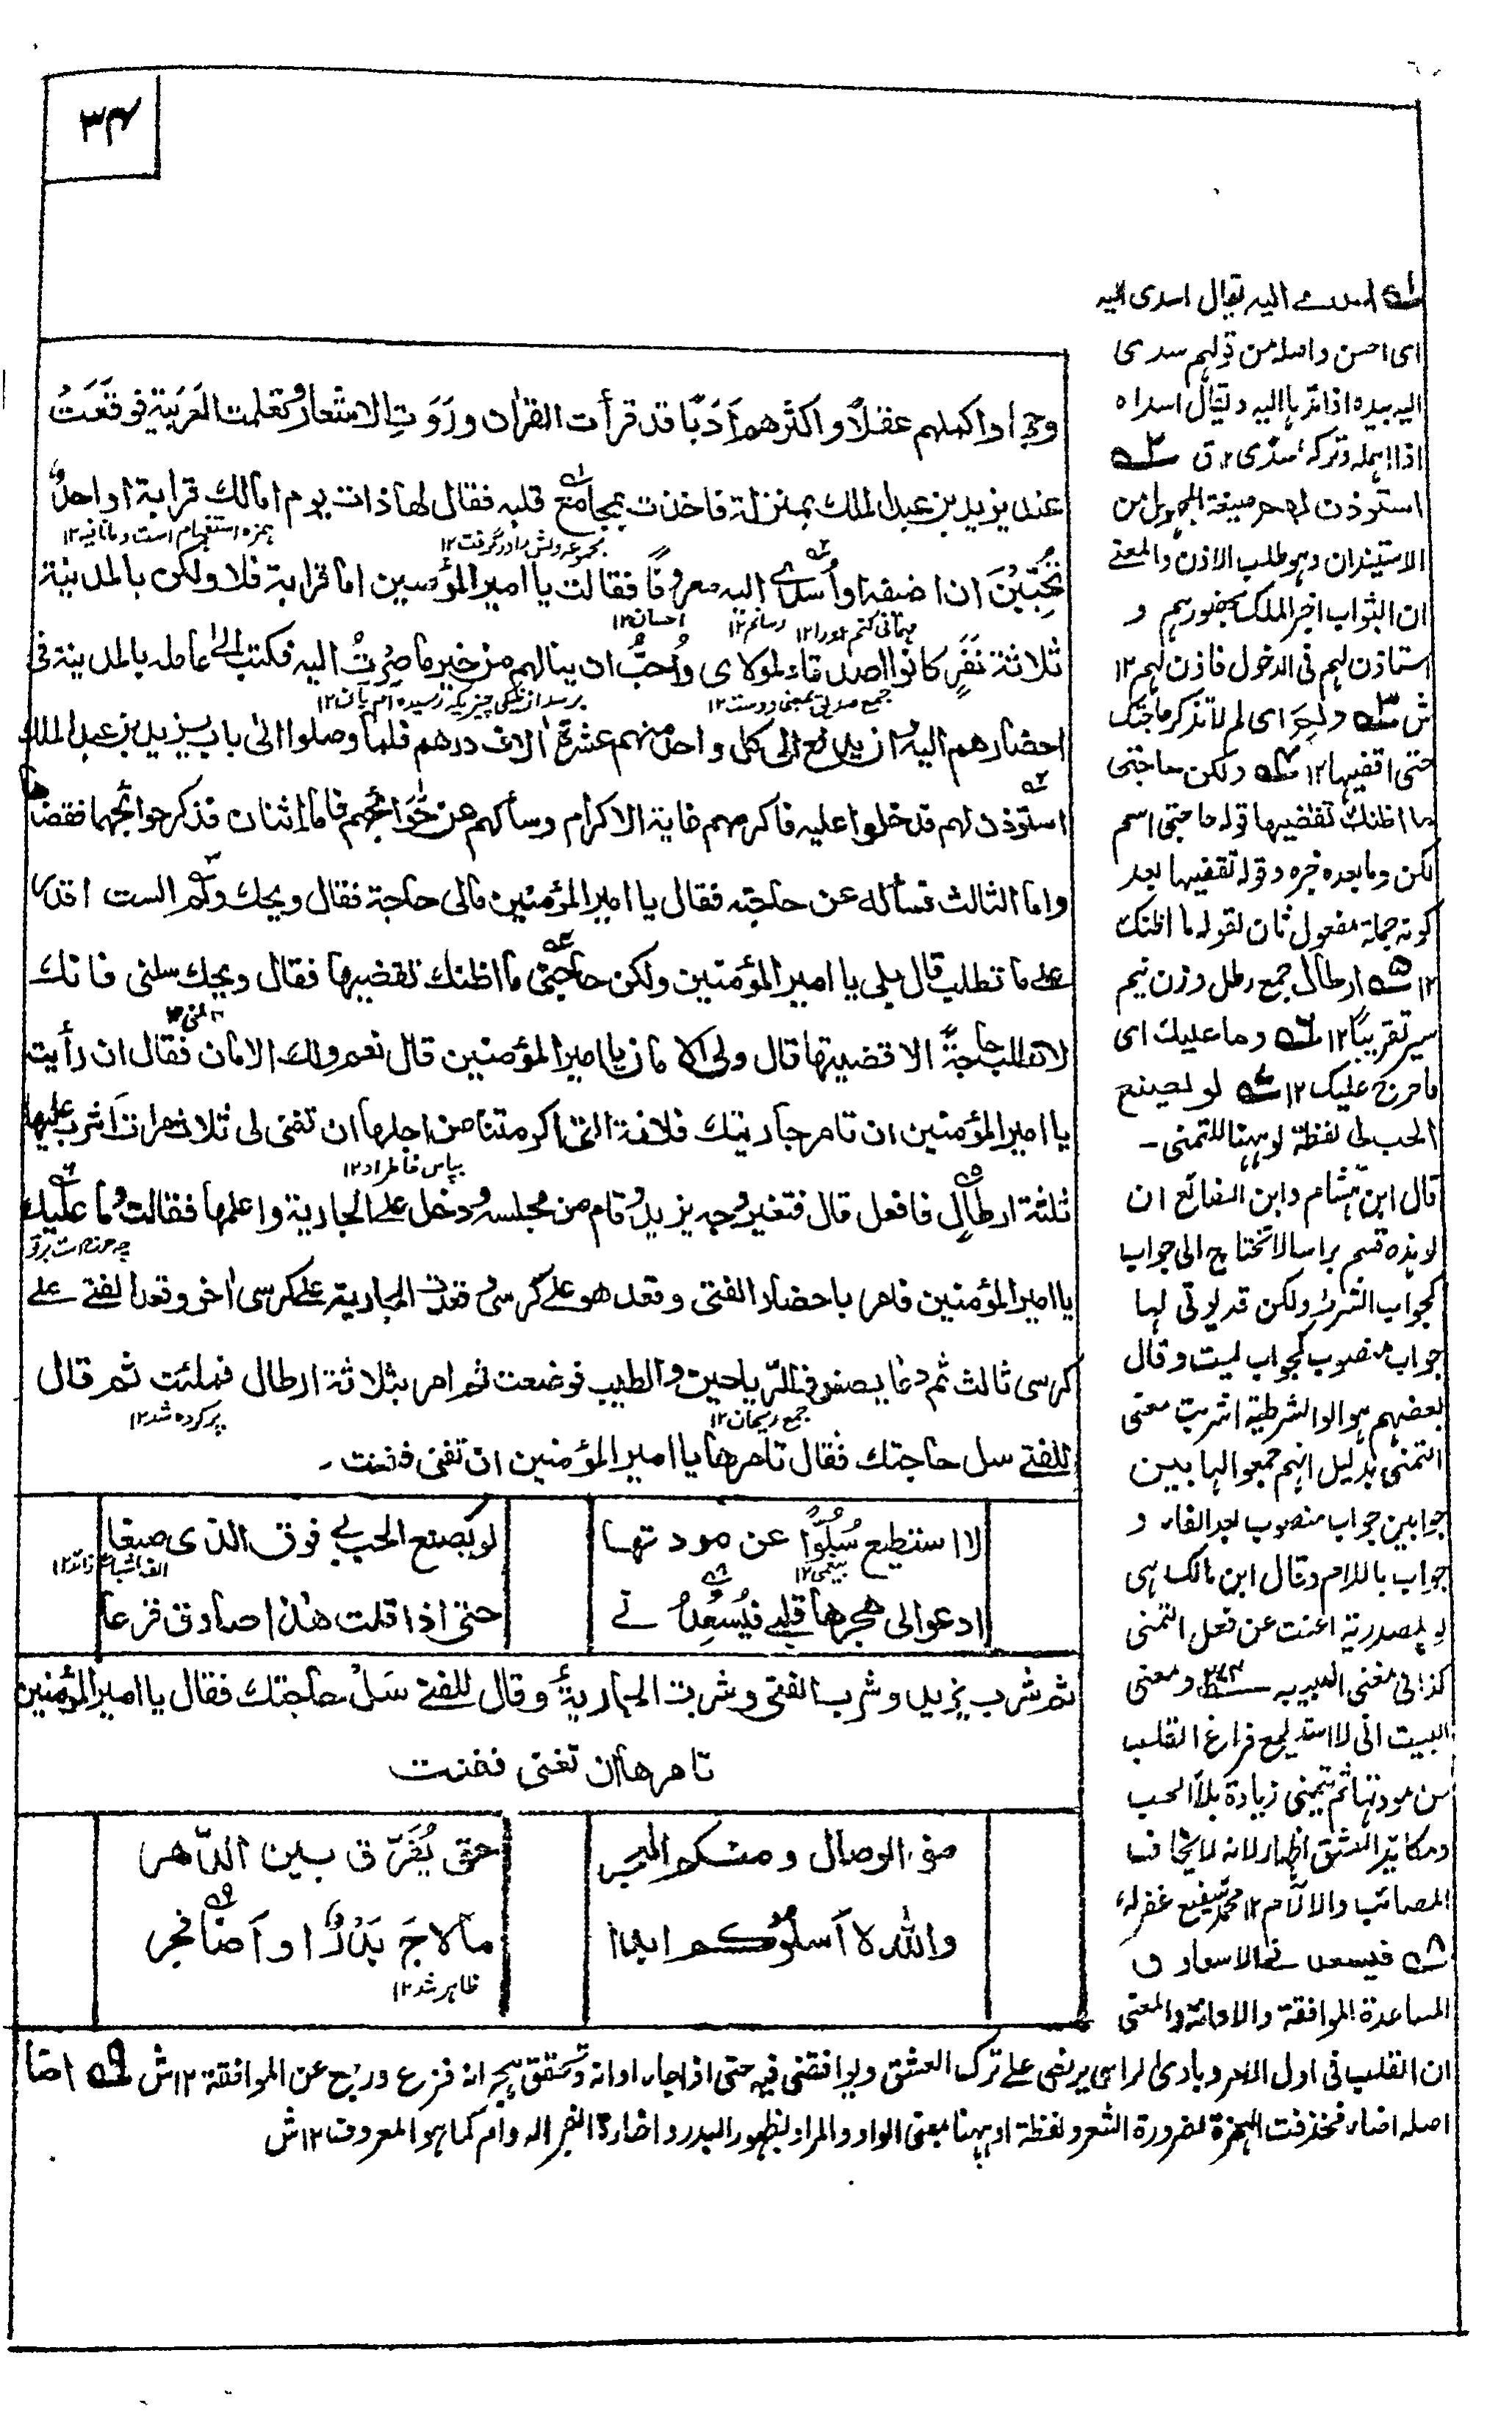 ۳۴
وجها واكملهم عقلا واكثرهم اَدَبًا قد قرأت القران ورَوَتِ الاشعار وتعلمت العَرَبية فوقَعَتْ
عند يزيد بن عبد الملك بمنزلة فاخذت بمجامع قلبه فقال لها ذات يوم امالك قرابة او احدٌ
همزه استفهام است و ما نافيه ۱۲
تُحِبّيْنَ ان اضيفه او اُسدے اليه معروفًا فقالت يا امير المؤمنين اما قرابة فلا ولكن بالمدينة
احسان ۱۲
ثلاثة نَفَرٍ كانوا اصدقاء لمولاى واُحبُّ ان ينالهم من خير ما صِرتُ اليه فكتب الى عامله بالمدينة فى
جمع صديق بمعنى دوست ۱۲
احضارهم اليه وان يدفع الى كل واحد منهم عشرة الاف درهم فلما وصلوا الى باب يزيد بن عبد الملك
استوذن لهم فدخلوا عليه فاكرمهم غاية الاكرام وسألهم عن حَوَائجهم فاما اثنان فذكر حوائجهما فقضاها
واما الثالث فسأله عن حاجته فقال يا امير المؤمنين مالى حاجة فقال ويحك ولم الست اقدر
على ما تطلب قال بلى يا امير المؤمنين ولكن حاجتى ما اظنك تقضيها فقال ويحك سلنى فانك
لا تطلب حاجةً الا قضيتها قال ولى الامان يا امير المؤمنين قال نعم ولك الامان فقال ان رأيت
يا امير المؤمنين ان تامر جاريتك فلانة التى اكرمتنا من اجلها ان تغنى لى ثلاث مرات اَشرب عليها
بپاس خاطر او ۱۲
ثلثة ارطال فافعل قال فتغير وجه يزيد وقام من مجلسه ودخل على الجارية واعلمها فقالت وما عليك
يا امير المؤمنين فامر باحضار الفتى وقعد هو على كرسى وقعدت الجارية على كرسى اخر وقعد الفتے علے
كرسى ثالث ثم دعا بصنوف الرّياحين والطيب فوضعت ثم امر بثلاثة ارطال فملئت ثم قال
جمع ريحان ۱۲
پر كرده شد ۱۲
للفتے سل حاجتك فقال تامرها يا امير المؤمنين ان تغنى فغنت -
لا استطيع سُلُوًّا عن مودتها
لو يَصنع الحب بے فوق الذى صنعا
الف اشباع زائد ۱۲
ادعو الى هجرها قلبے فيُسْعِدُنے
حتى اذا قلت هذا صادق نزعا
ثم شرب يزيد وشرب الفتى وشربت الجارية وقال للفتے سَلْ حاجتك فقال يا امير المؤمنين
تامرها ان تغنى فغنت
منى الوصال ومنكم الهجر
حتى يُفَرّق بيننا الدّهر
والله لا اَسلوكم ابدا
ما لاحَ بَدْرٌ او اَضا فجر
ظاهر شد ۱۲
اسدے اليه يقال اسدى اليه
اى احسن واصله من قولهم سدى
اليه بيده اذا مدّ بها اليه ويقال اسداه
اذا اهمله وتركه سدًى ۱۲ ق
استوذن لهم صيغة المجهول من
الاستيذان وهو طلب الاذن والمعنے
ان البواب اخبر الملك بحضورهم و
استاذن لهم فى الدخول فاذن لهم ۱۲
ش ولم اى لم لا تذكر حاجتك
حتى اقضيها ۱۲ ولكن حاجتى
ما اظنك تقضيها قوله حاجتى اسم
لكن وما بعده خبره وقوله تقضيها بعد
كونه جملة مفعول ثان لقوله ما اظنك
۱۲ ارطال جمع رطل وزن نيم
سير تقريبًا ۱۲ وما عليك اى
ما حرج عليك ۱۲ لو يصنع
الحب بى لفظة لو ههنا للتمنى -
قال ابن هشام وابن الضائع ان
لو هذه قسم براسها لا تحتاج الى جواب
كجواب الشرط ولكن قد يؤتى لها
جواب منصوب كجواب ليت وقال
بعضهم هو لو الشرطية اشربت معنى
التمنى بدليل انهم جمعوا لها بين
جوابين جواب منصوب بعد الفاء و
جواب باللام وقال ابن مالك هى
لو المصدرية اغنت عن فعل التمنى
كذا فى مغنى اللبيب ومعنى
البيت انى لا استطيع فراغ القلب
من مودتها ثم يتمنى زيادة بلاء الحب
ومكايد العشق اظهارا لانه لا يخاف
المصائب والالآم ۱۲ محمد شفيع غفرله
فيسعدنے الاسعاد و
المساعدة الموافقة والاعانة والمعنى
ان القلب فى اول الامر وبادئ الراى يرضى على ترك العشق ويوافقنى فيه حتى اذا جاء اوانه وتحقق هجره انه فزع ورجع عن الموافقة ۱۲ ش اضا
اصله اضاء فحذفت الهمزة لضرورة الشعر ولفظة او ههنا بمعنى الواو والمراد بظهور البدر واضاءة الفجر الدوام كما هو المعروف ۱۲ ش